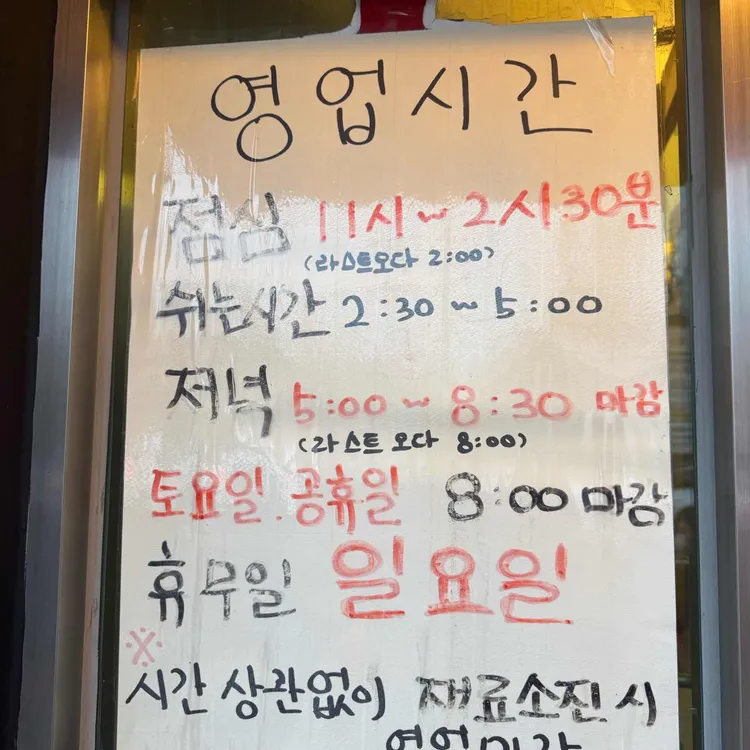 영업시간
점심 11시~2시30분
(라스트오다 2:00)
쉬는시간 2:30 ~ 5:00
저녁 5:00 ~ 8:30 마감
(라스트 오다 8:00)
토요일.공휴일 8:00 마감
휴무일 일요일
※
시간 상관없이 재료소진 시
영업마감